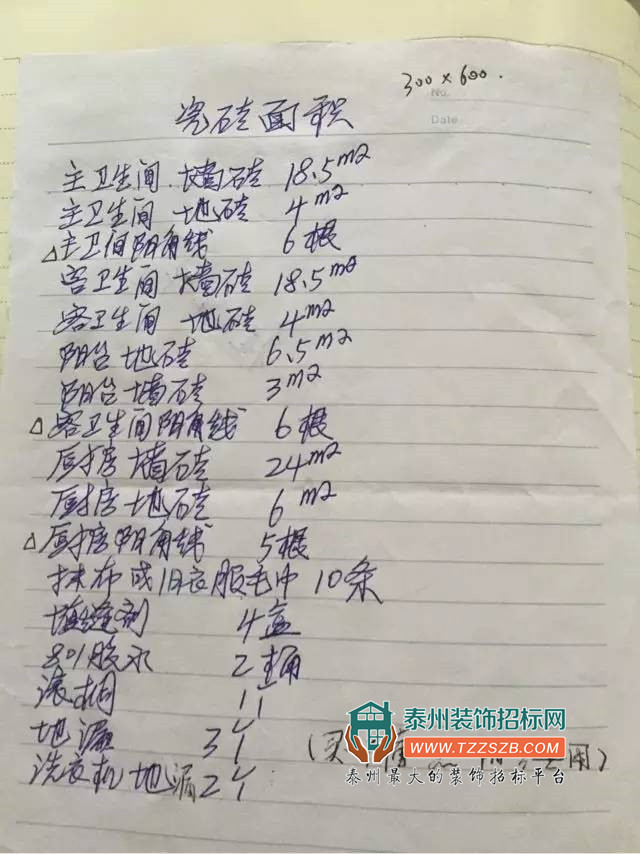 300×600.
No.
Date
瓷砖面积
主卫生间墙砖 18.5m2
主卫生间 地砖 4m2
△主卫间阴角线 6根
客卫生间墙砖 18.5m2
客卫生间 地砖 4m2
阳台地砖 6.5m2
阳台墙砖 3m2
△客卫生间阴角线 6根
厨房墙砖 24m2
厨房地砖 6m2
△厨房阴角线 5根
抹布或旧衣服毛巾 10条
填缝剂 4盒
801胶水 2桶
滚桐 1个
地漏 3个
洗衣机地漏2个
(买 用)
泰州装饰招标网
WWW.TZZSZB.COM
泰州最大的装饰招标平台